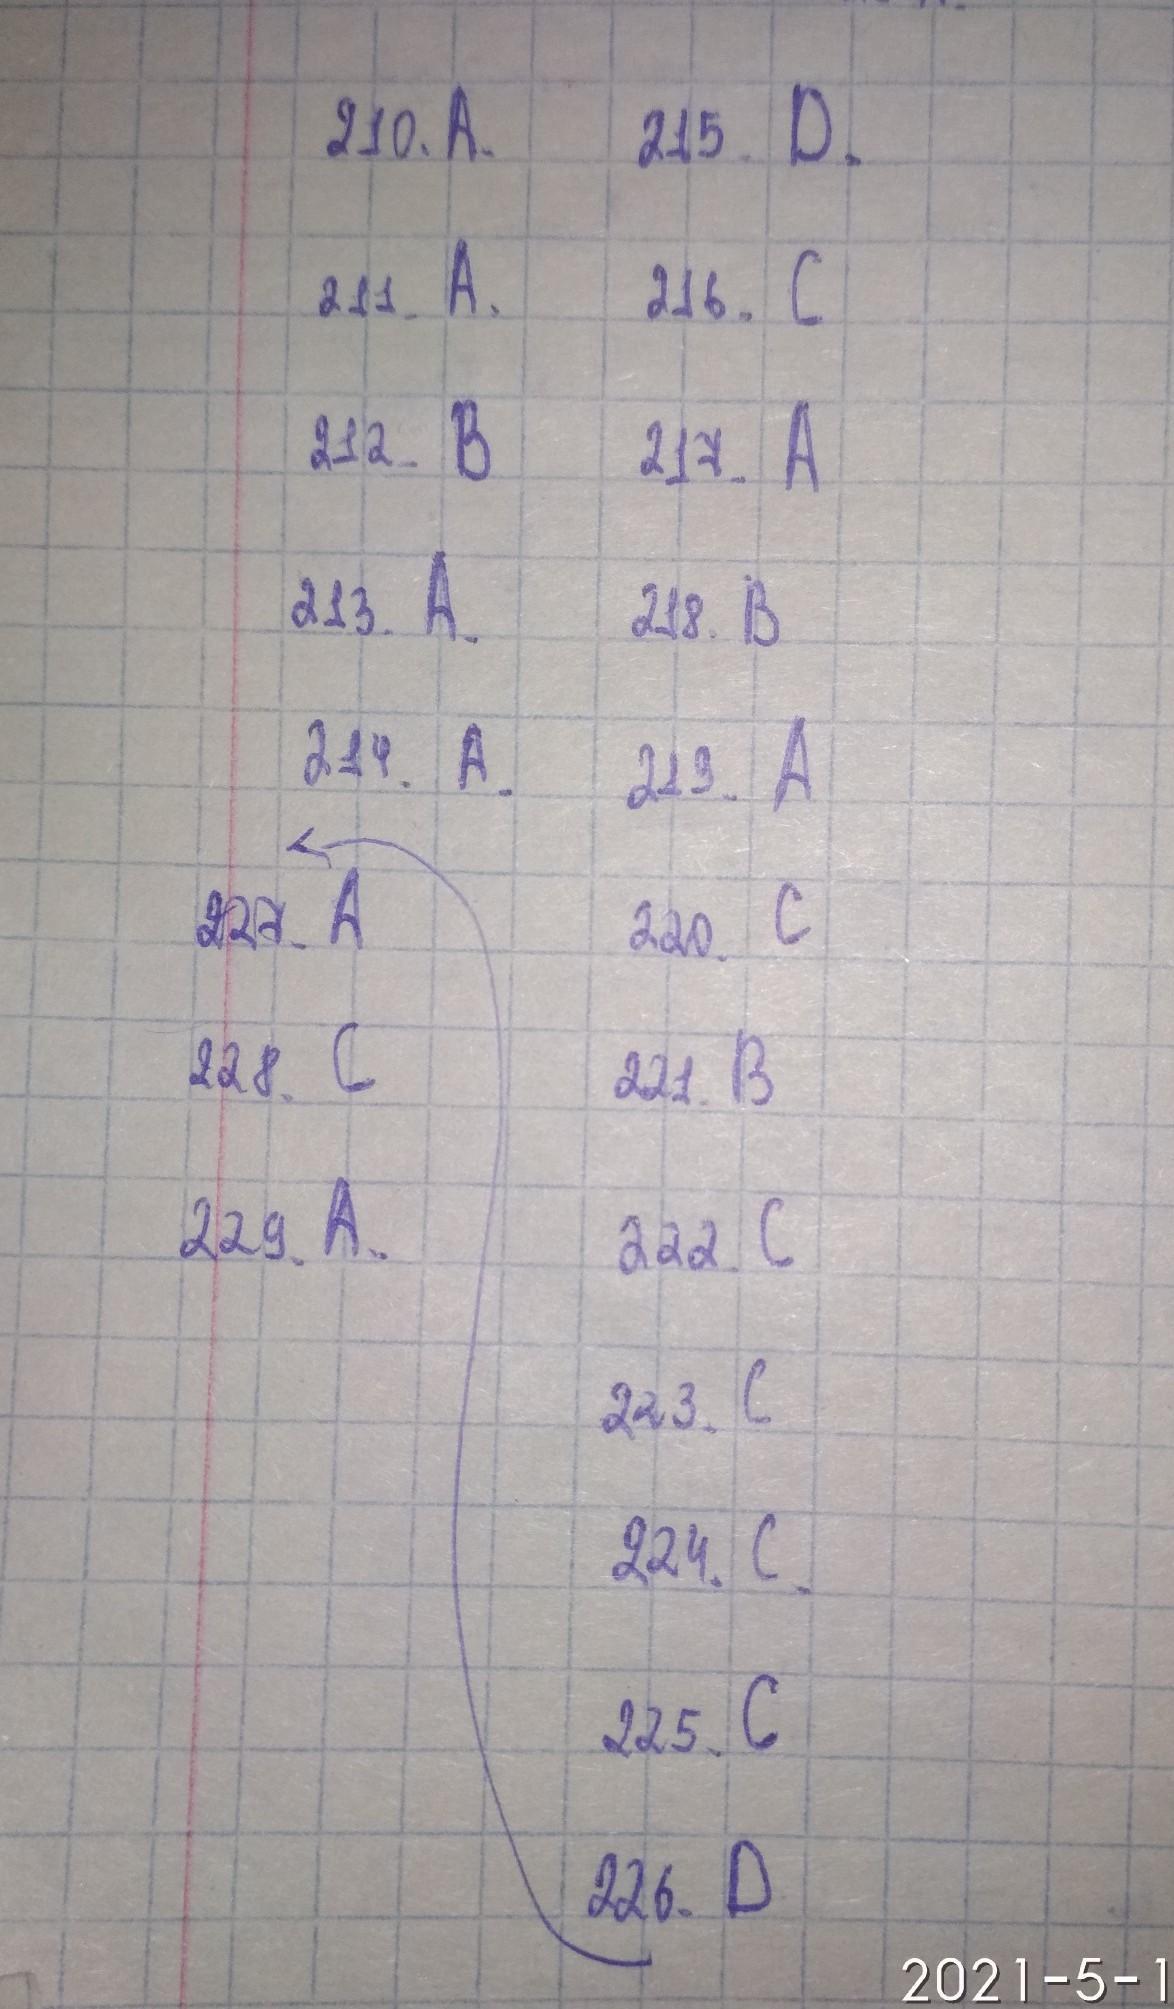 210. A.
211. A.
212. B
213. A.
214. A.
215. D.
216. C
217. A
218. B
219. A
220. C
221. B
222. C
223. C
224. C.
225. C
226. D
227. A
228. C
229. A.
2021-5-1